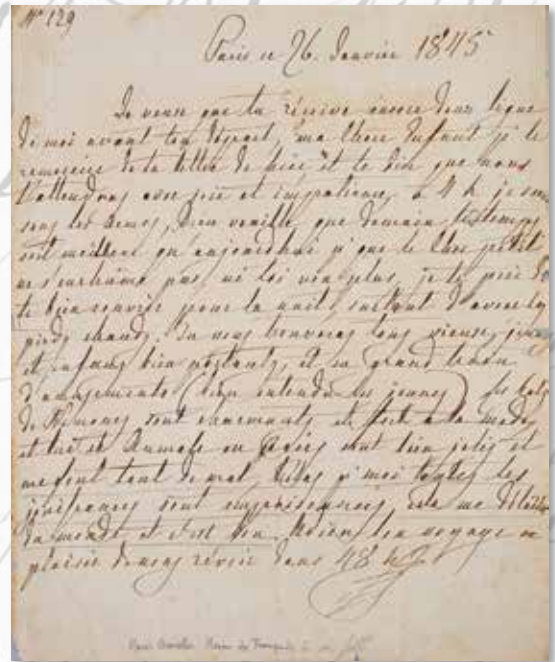 Nº 129
Paris ce 26. Janvier 1845
Je veux que tu reçoive encore deux ligne
de moi avant ton départ, ma chere Enfant je te
remercie de ta lettre de hier et te dire que nous
t'attendons avec joie et impatience, à 4 h. je serai
sous les armes, Dieu veuille que demain le temps
soit meilleur qu'aujourd'hui que le cher petit
ne s'enrhume pas, ni toi non plus, je te prie de
te bien couvrir pour la nuit, surtout d'avoir les
pieds chauds. Tu nous trouveras tous vieux, jeunes
et enfans bien portants, et en grand train
d'amusements (bien entendu les jeunes) les bals
de Nemours sont charmants et fort à la mode,
et de Aumale on bien jolis et
me font tout de mal, hélas moi toutes les
jouissances sont empoisonnées,
du monde, et c'est bon voyage
plaisir de nous révoir dans 48 h.
Reine des Français à sa fille